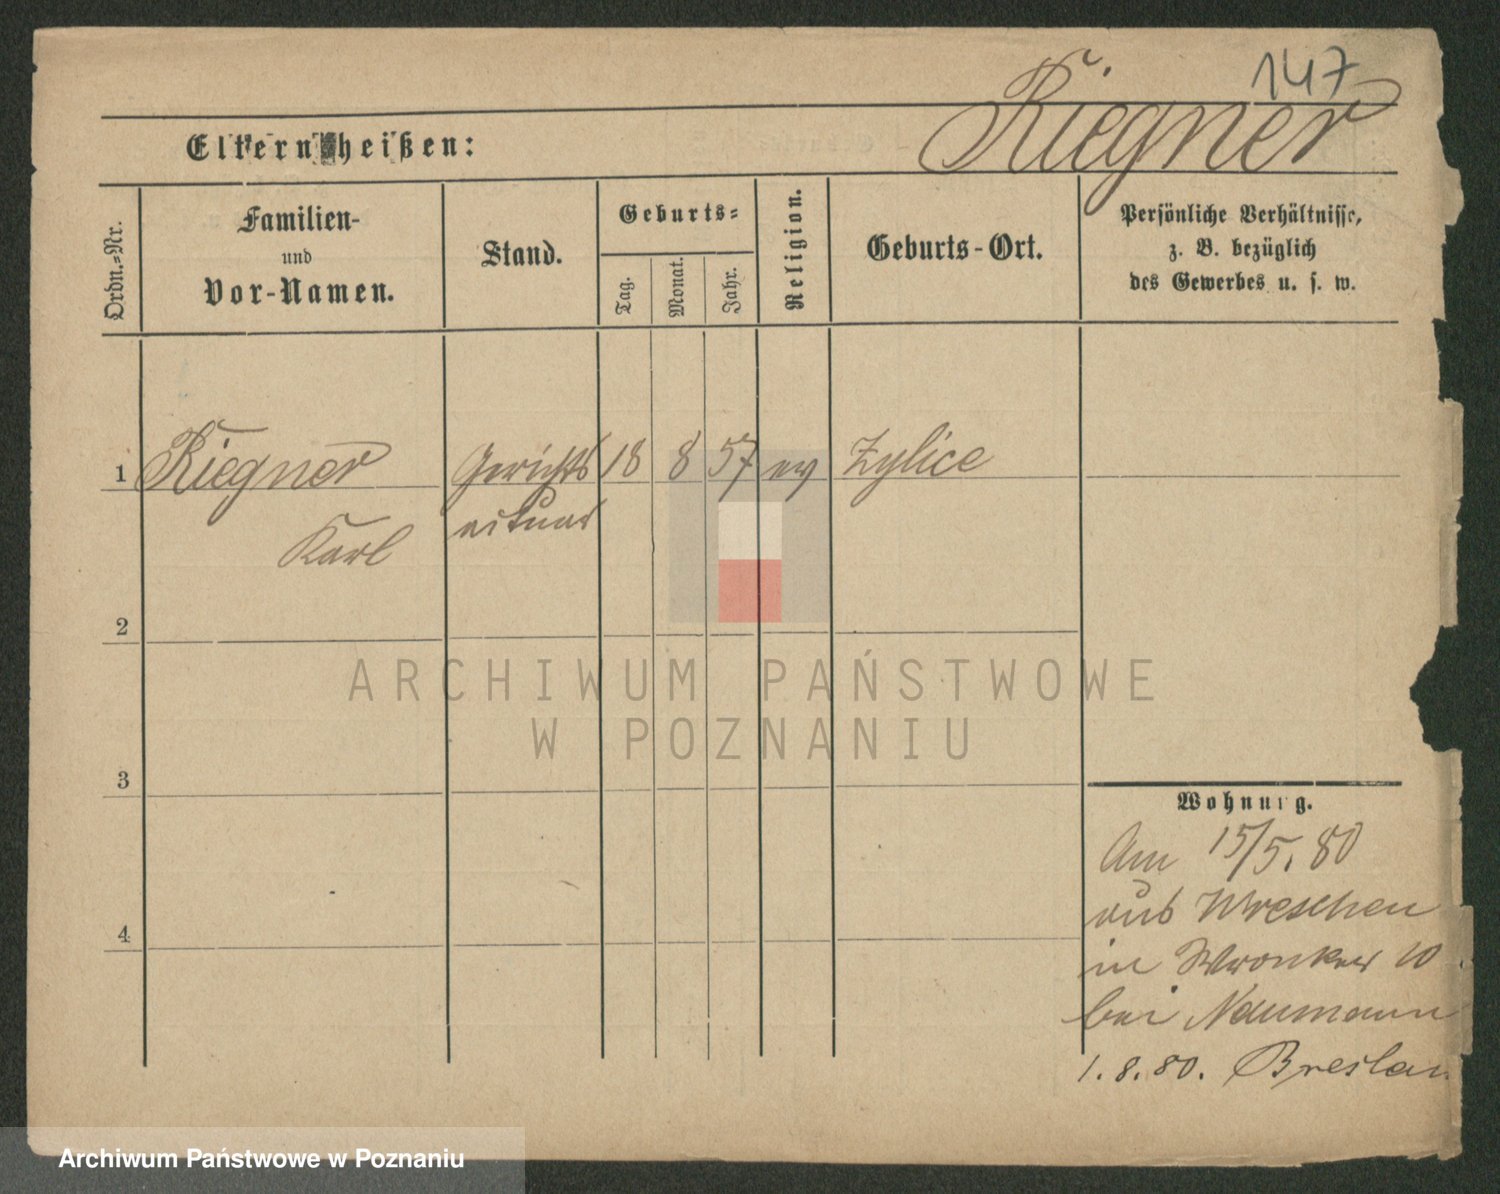 147
Riegner
Eltern heißen:
Ordn.=Nr.
Familien-
und
Vor-Namen.
Stand.
Geburts=
Tag.
Monat.
Jahr.
Religion.
Geburts-Ort.
Persönliche Verhältnisse,
z. B. bezüglich
des Gewerbes u. s. w.
1 Riegner Gerichts 18 8 57 ev Zylice
Karl actuar
2
3
4
Wohnung.
Am 15/5. 80
aus Wreschen
in Wronker 10
bei Naumann
1. 8. 80. Breslau
ARCHIWUM PAŃSTWOWE
W POZNANIU
Archiwum Państwowe w Poznaniu